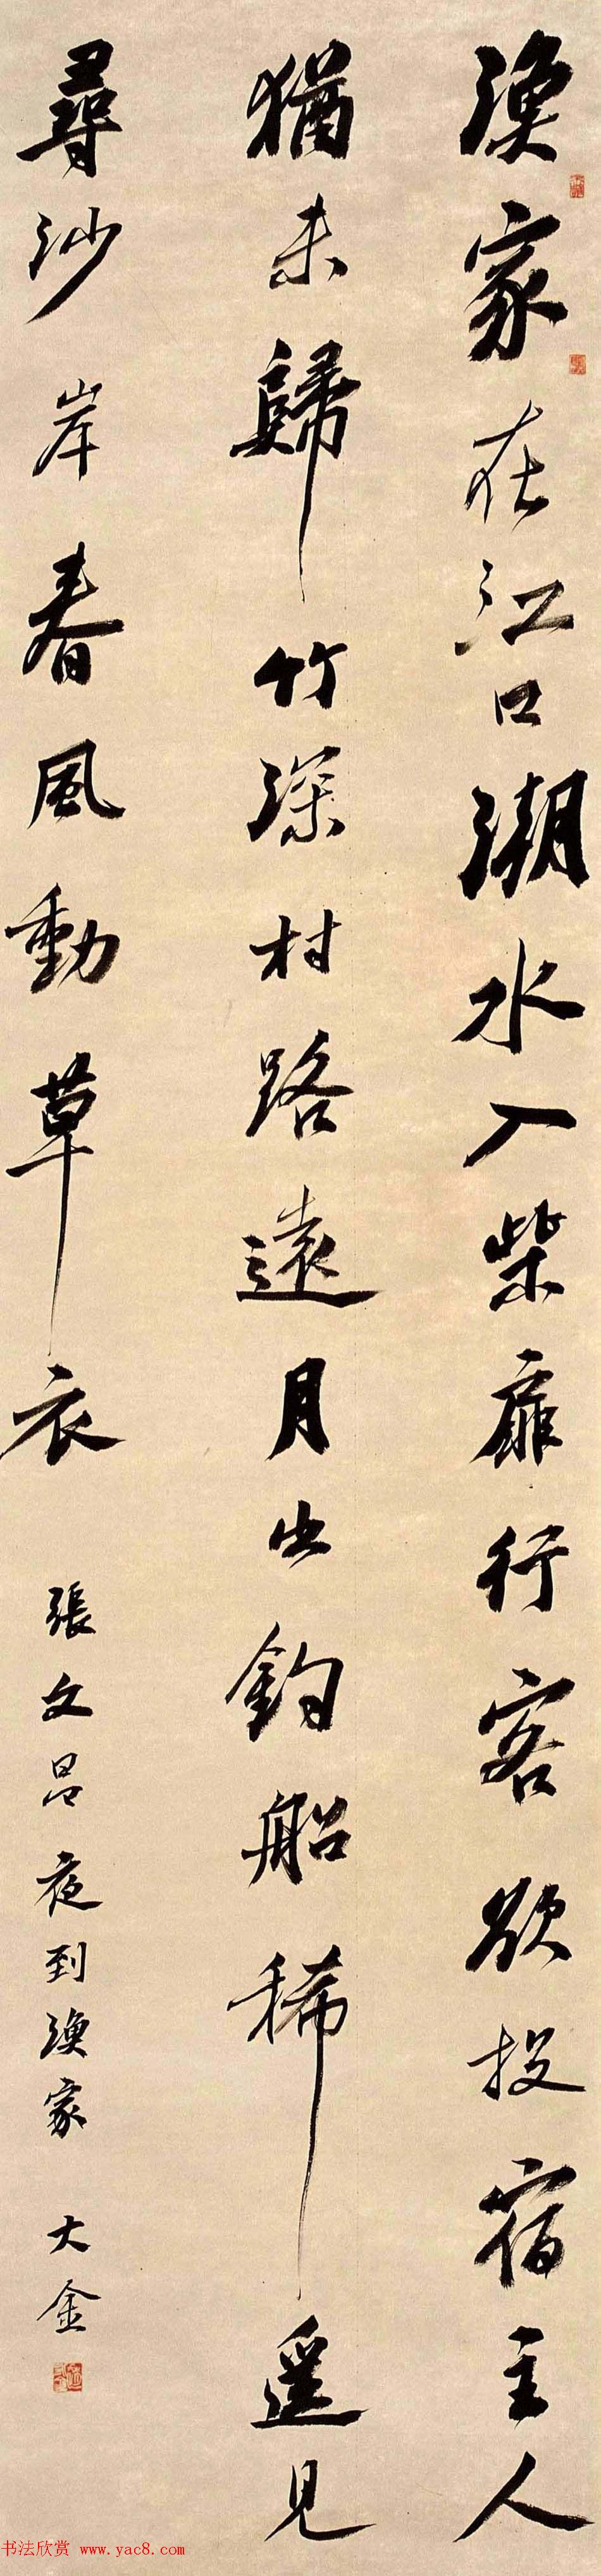 漁家在江口潮水入柴扉行客欲投宿主人
猶未歸竹深村路遠月出釣船稀遥見
尋沙岸春風動草衣
張文昌夜到漁家 大金
书法欣赏 www.yac8.com